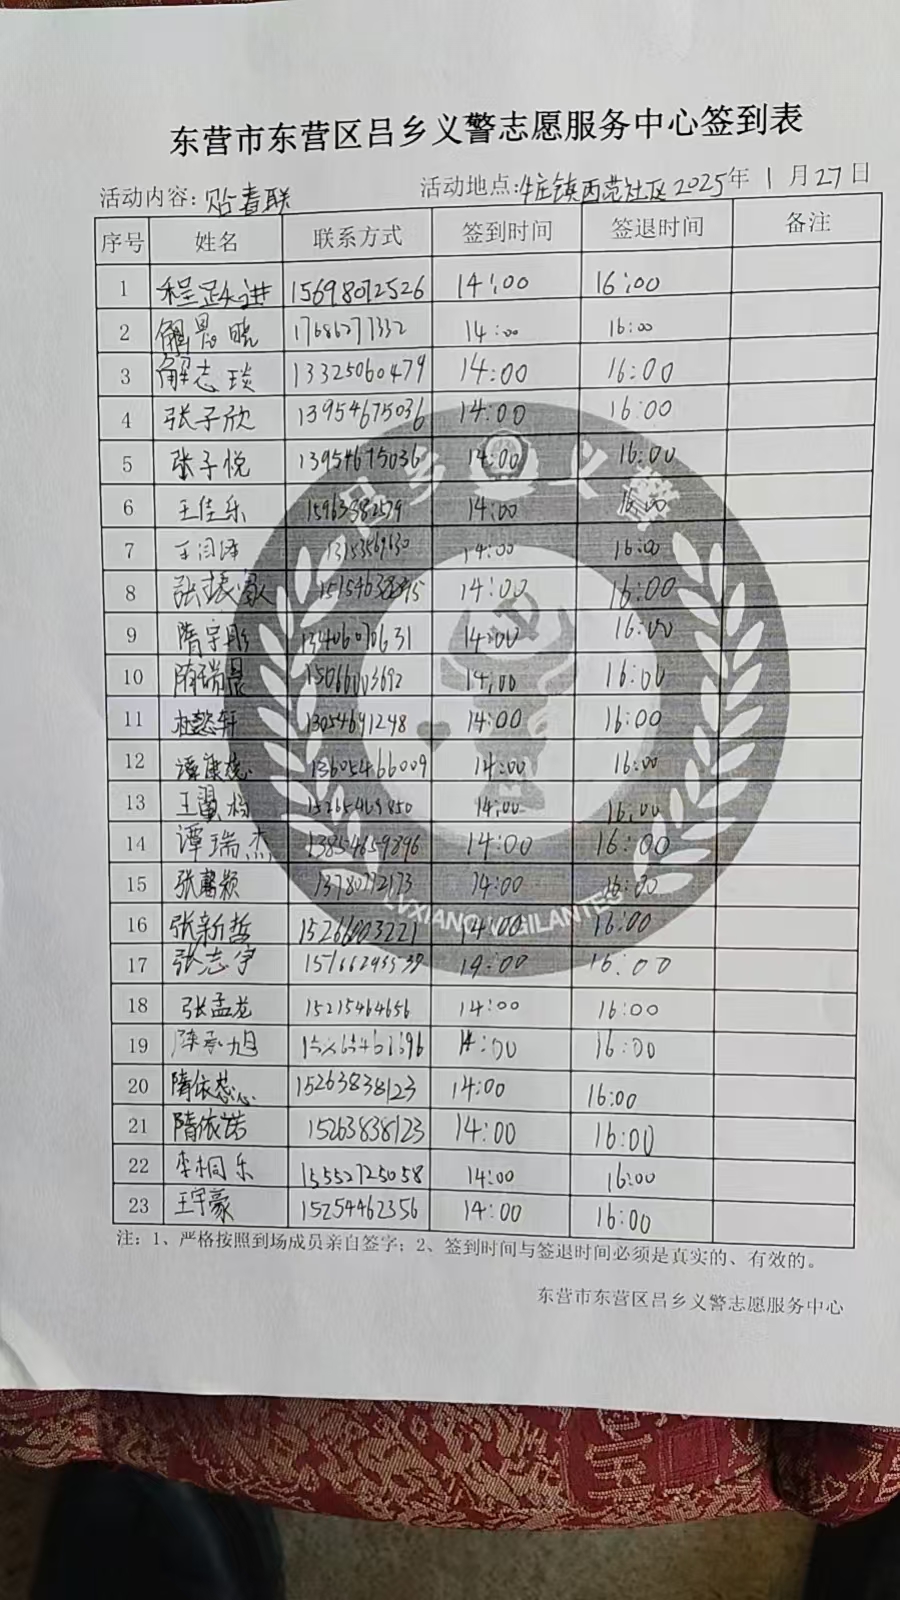 东营市东营区吕乡义警志愿服务中心签到表
活动内容:贴春联 活动地点:牛庄镇西范社区2025年1月27日
序号 姓名 联系方式 签到时间 签退时间 备注
1 程跃进 15698072526 14:00 16:00
2 解晨晓 17686277332 14:00 16:00
3 解志琰 13325060479 14:00 16:00
4 张子欣 13954675036 14:00 16:00
5 张子悦 13954675036 14:00 16:00
6 王佳乐 15963882579 14:00 16:00
7 14:00 16:00
8 张振 14:00 16:00
9 隋宇彤 13406070631 14:00 16:00
10 隋瑞晨 14:00 16:00
11 杜懿轩 13054691248 14:00 16:00
12 谭康懿 13605466009 14:00 16:00
13 14:00 16:00
14 谭瑞杰 13854659896 14:00 16:00
15 张馨颖 13780772173 14:00 16:00
16 张新哲 15266003221 14:00 16:00
17 张志宇 14:00 16:00
18 张孟龙 15215464656 14:00 16:00
19 14:00 16:00
20 隋依蕊 15263838123 14:00 16:00
21 隋依诺 15263838123 14:00 16:00
22 李桐乐 15552725058 14:00 16:00
23 王宇豪 15254462356 14:00 16:00
吕乡义警
LVXIANG VIGILANTES
注:1、严格按照到场成员亲自签字;2、签到时间与签退时间必须是真实的、有效的。
东营市东营区吕乡义警志愿服务中心